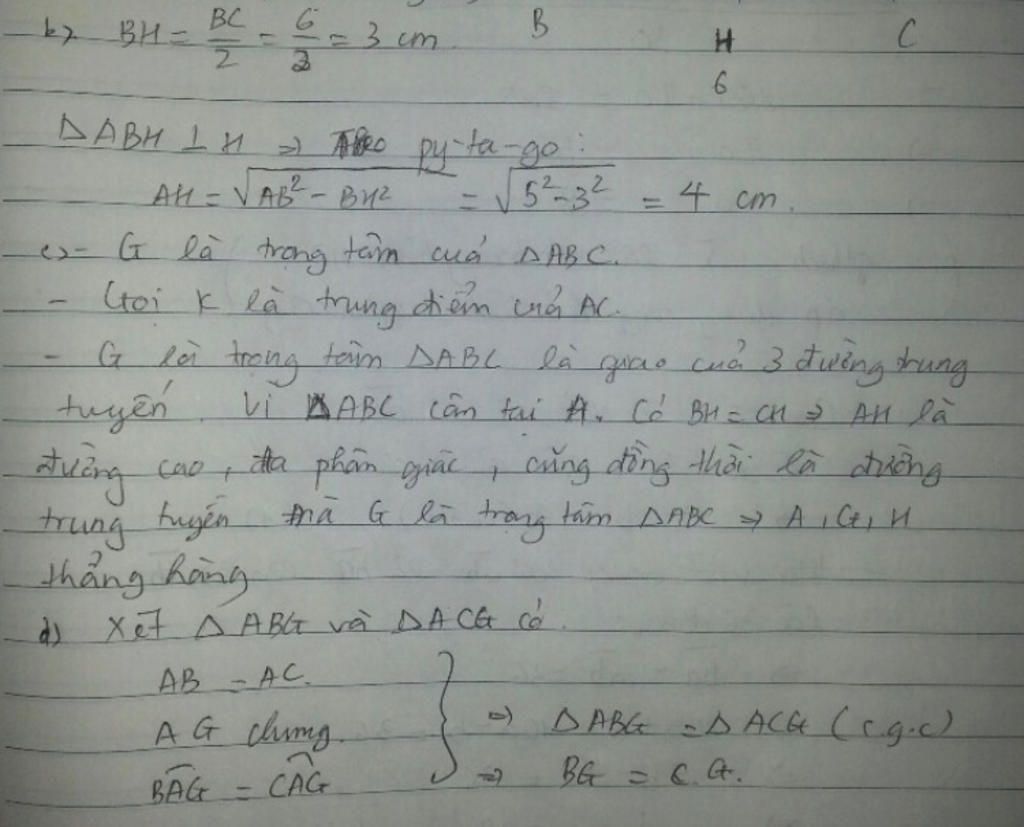 b) BH = BC/2 = 6/2 = 3 cm. B H C
6
ΔABH ⊥ H ⇒ py-ta-go:
AH = √(AB² - BH²) = √(5² - 3²) = 4 cm.
c) - G là trọng tâm cuả ΔABC.
- Gọi K là trung điểm cuả AC.
- G là trọng tâm ΔABC là giao cuả 3 đường trung
tuyến. Vì ΔABC cân tại A. Có BH = CH ⇒ AH là
đường cao, phân giác, cũng đồng thời là đường
trung tuyến mà G là trọng tâm ΔABC ⇒ A, G, H
thẳng hàng
d) Xét ΔABG và ΔACG có
AB = AC.
AG chung. ⇒ ΔABG = ΔACG (c.g.c)
BAG = CAG ⇒ BG = CG.